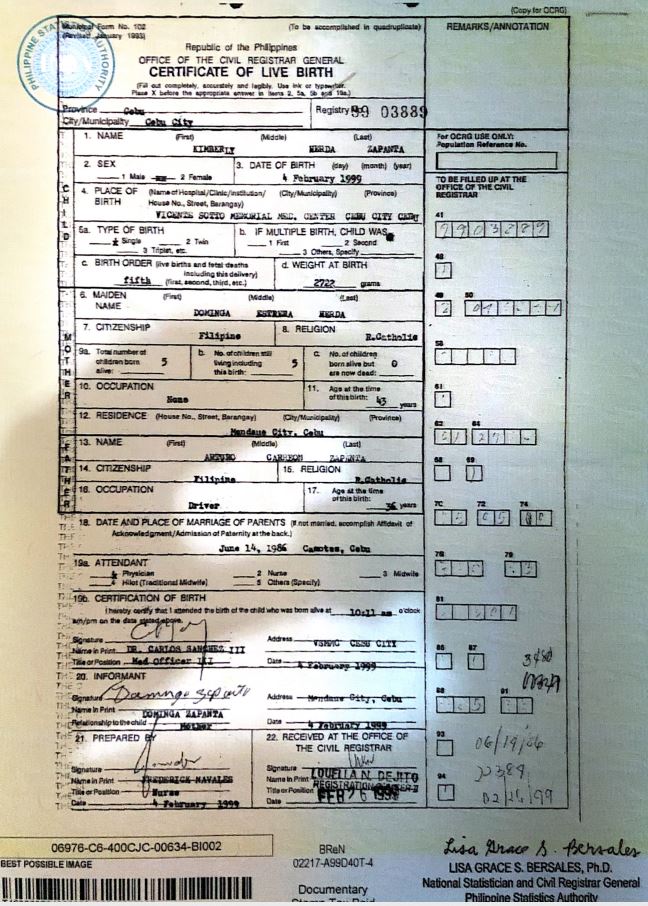 (Copy for OCRG)
Municipal Form No. 102
(Revised, January 1993)
(To be accomplished in quadruplicate)
REMARKS/ANNOTATION
PHILIPPINE STATISTICS AUTHORITY
Republic of the Philippines
OFFICE OF THE CIVIL REGISTRAR GENERAL
CERTIFICATE OF LIVE BIRTH
(Fill out completely, accurately and legibly. Use ink or typewriter.
Place X before the appropriate answer in items 2, 5a, 5b and 19a.)
Province Cebu
City/Municipality Cebu City
Registry 99 03889
For OCRG USE ONLY:
Population Reference No.
1. NAME (First) (Middle) (Last)
KIMBERLY MERDA ZAPANTA
2. SEX
1 Male 2 Female
3. DATE OF BIRTH (day) (month) (year)
4 February 1999
TO BE FILLED UP AT THE
OFFICE OF THE CIVIL
REGISTRAR
CHILD
4. PLACE OF BIRTH (Name of Hospital/Clinic/Institution/ (City/Municipality) (Province)
House No., Street, Barangay)
VICENTE SOTTO MEMORIAL MED. CENTER CEBU CITY CEBU
41
5a. TYPE OF BIRTH
1 Single 2 Twin
3 Triplet, etc.
b. IF MULTIPLE BIRTH, CHILD WAS
1 First 2 Second
3 Others, Specify
c. BIRTH ORDER (live births and fetal deaths
including this delivery)
fifth (first, second, third, etc.)
d. WEIGHT AT BIRTH
2722 grams
48
MOTHER
6. MAIDEN NAME (First) (Middle) (Last)
DOMINGA ESTRERA MERDA
49 50
7. CITIZENSHIP Filipino
8. RELIGION R.Catholic
9a. Total number of
children born
alive: 5
b. No. of children still
living including
this birth: 5
c. No. of children
born alive but
are now dead: 0
10. OCCUPATION
None
11. Age at the time
of this birth: 43 years
61
12. RESIDENCE (House No., Street, Barangay) (City/Municipality) (Province)
Mandaue City, Cebu
62 64
FATHER
13. NAME (First) (Middle) (Last)
ARTURO CARREON ZAPANTA
14. CITIZENSHIP
Filipino
15. RELIGION
R.Catholic
68 69
16. OCCUPATION
Driver
17. Age at the time
of this birth: 36 years
72 74
18. DATE AND PLACE OF MARRIAGE OF PARENTS (If not married, accomplish Affidavit of
Acknowledgment/Admission of Paternity at the back.)
June 14, 1986 Camotes, Cebu
19a. ATTENDANT
1 Physician 2 Nurse 3 Midwife
4 Hilot (Traditional Midwife) 5 Others (Specify)
79
19b. CERTIFICATION OF BIRTH
I hereby certify that I attended the birth of the child who was born alive at 10:11 am o'clock
am/pm on the date stated above.
81
Signature
Address VSMMC CEBU CITY
Name in Print DR. CARLOS SANCHEZ III
Title or Position Med Officer III
Date 4 February 1999
20. INFORMANT
Signature
Address Mandaue City, Cebu
Name in Print DOMINGA ZAPANTA
Relationship to the child Mother
Date 4 February 1999
21. PREPARED BY
Signature
Name in Print FREDERICK NAVALES
Title or Position Nurse
Date 4 February 1999
22. RECEIVED AT THE OFFICE OF
THE CIVIL REGISTRAR
Signature
Name in Print LOUELLA N. DEJITO
Title or Position REGISTRATION OFFICER II
Date FEB 26 1999
93
94
02/26/99
06976-C6-400CJC-00634-BI002
BEST POSSIBLE IMAGE
BReN
02217-A99D40T-4
Documentary
Stamp Tax Paid
Lisa Grace S. Bersales
LISA GRACE S. BERSALES, Ph.D.
National Statistician and Civil Registrar General
Philippine Statistics Authority